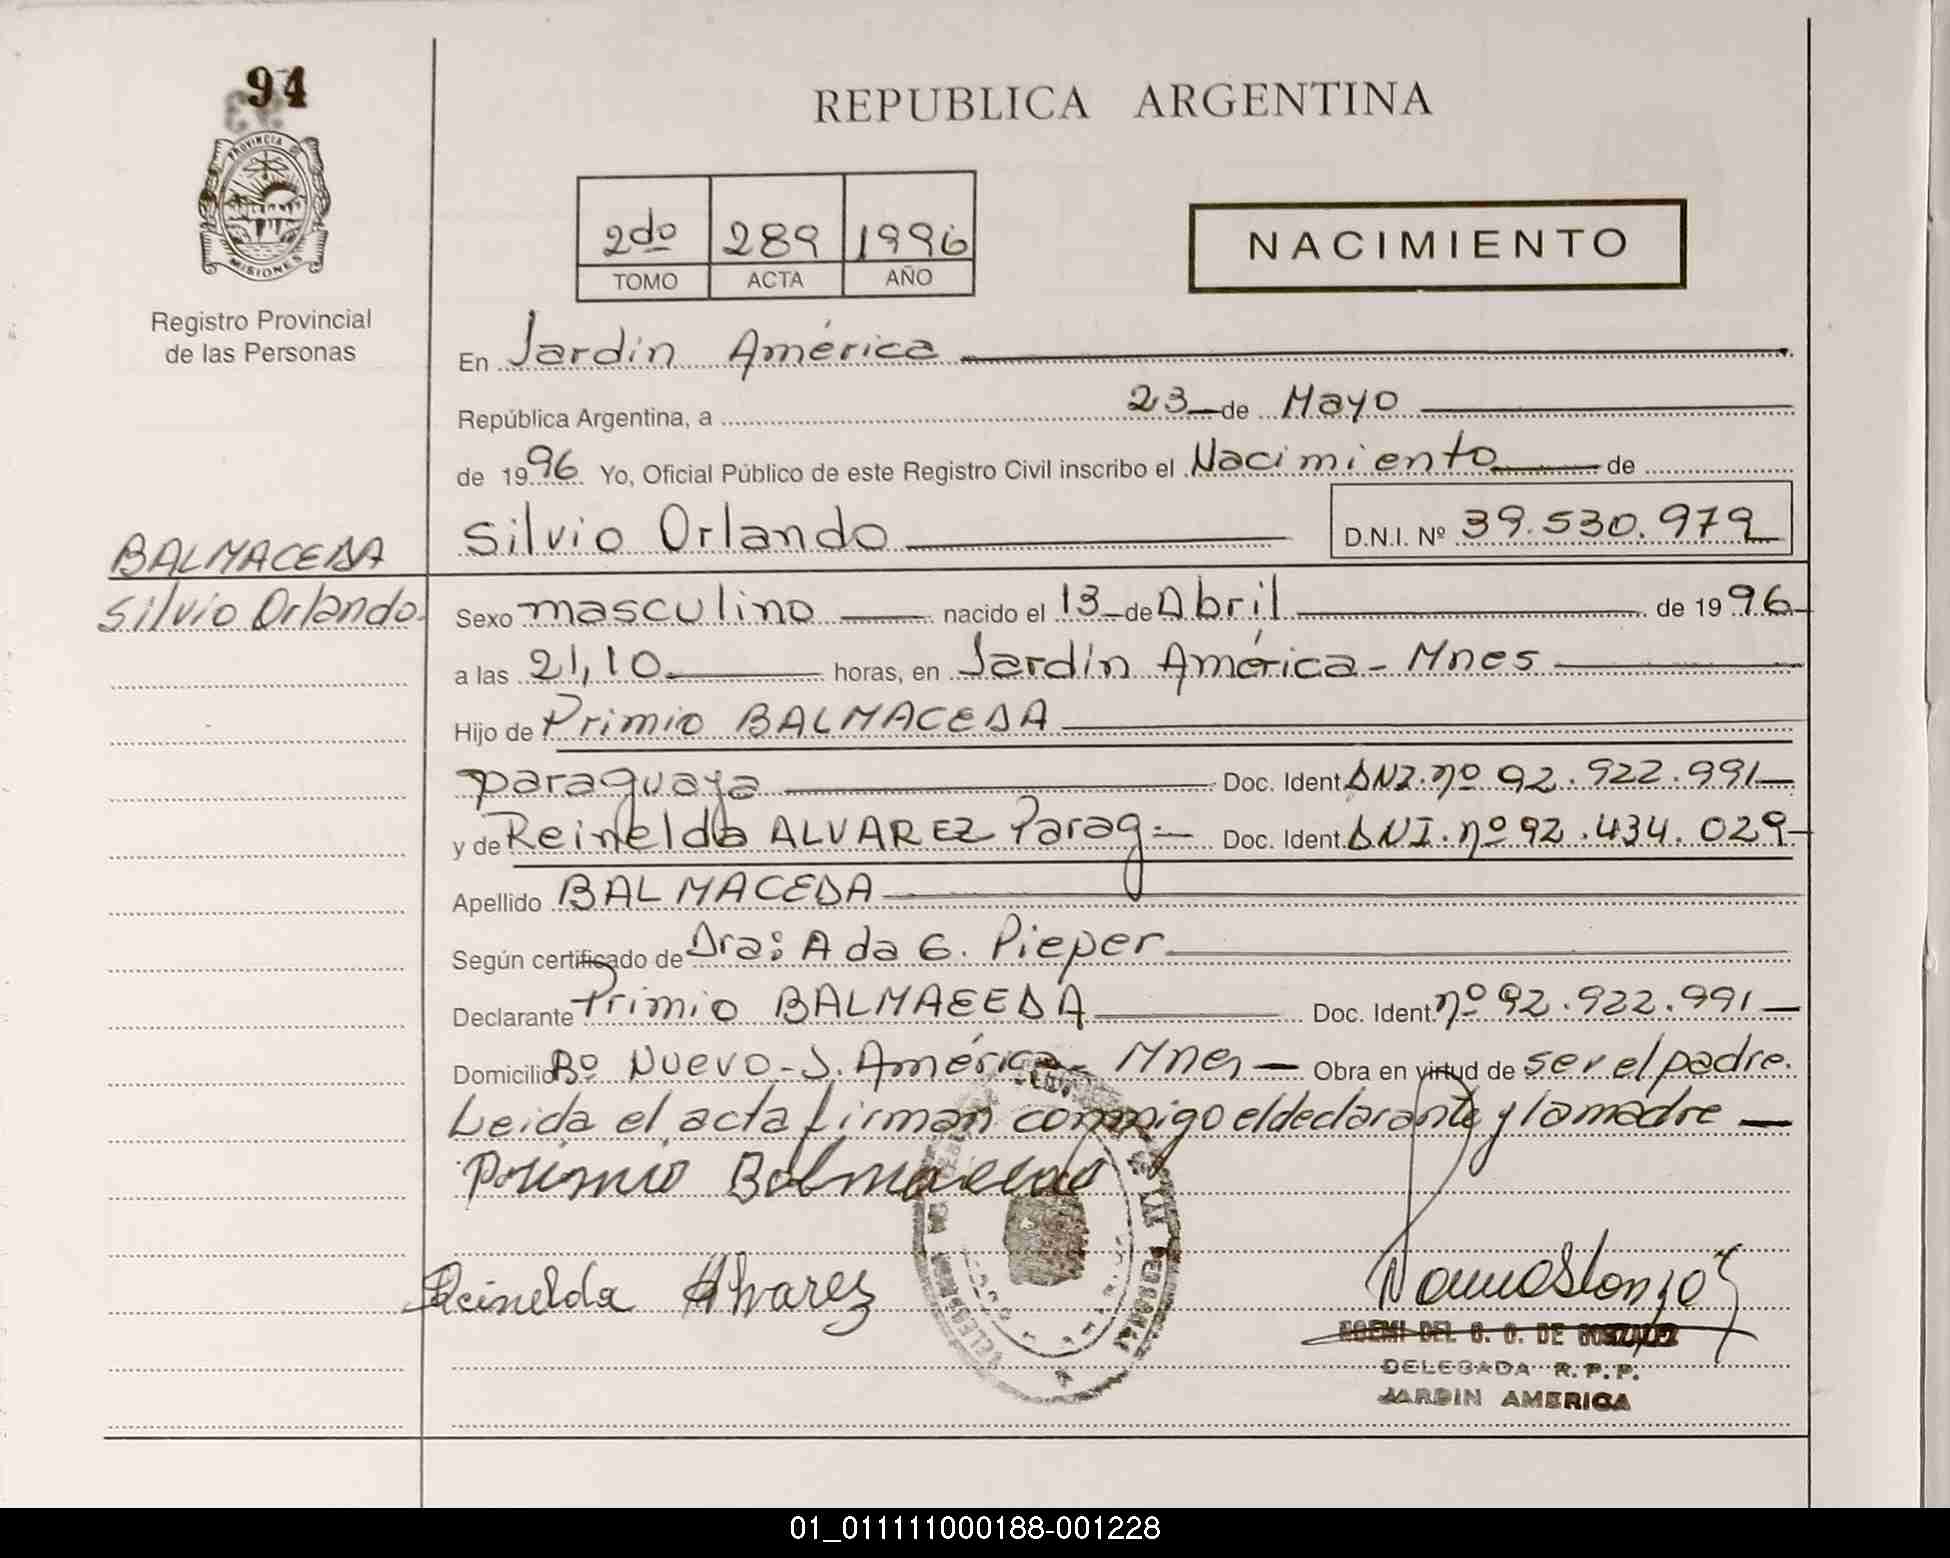 94
PROVINCIA DE
MISIONES
Registro Provincial
de las Personas
REPUBLICA ARGENTINA
2do 289 1996
TOMO ACTA AÑO
NACIMIENTO
En Jardín América
República Argentina, a 23 de Mayo
de 1996 Yo, Oficial Público de este Registro Civil inscribo el Nacimiento de
Silvio Orlando D.N.I. Nº 39.530.979
BALMACEDA
Silvio Orlando.
Sexo masculino nacido el 13 de Abril de 1996
a las 21,10 horas, en Jardín América - Mnes
Hijo de Primio BALMACEDA
paraguaya Doc. Ident. DNI. nº 92.922.991
y de Reinelda ALVAREZ Parag. Doc. Ident. DNI. nº 92.434.029
Apellido BALMACEDA
Según certificado de Dra: Ada G. Pieper
Declarante Primio BALMACEDA Doc. Ident. nº 92.922.991
Domicilio Bº Nuevo - J. América - Mnes Obra en virtud de ser el padre.
Leida el acta firman conmigo el declarante y la madre
Primio Balmaceda
Reinelda Alvarez
DELEGADA R.P.P.
JARDIN AMERICA
01_011111000188-001228